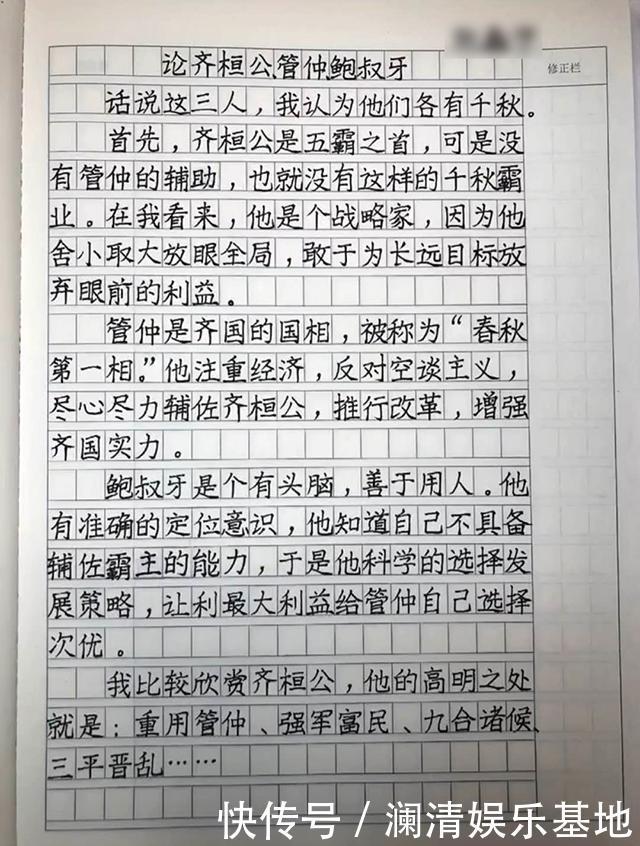 论齐桓公管仲鲍叔牙
修正栏
话说这三人，我认为他们各有千秋。
首先，齐桓公是五霸之首，可是没
有管仲的辅助，也就没有这样的千秋霸
业。在我看来，他是个战略家，因为他
舍小取大放眼全局，敢于为长远目标放
弃眼前的利益。
管仲是齐国的国相，被称为“春秋
第一相。”他注重经济，反对空谈主义，
尽心尽力辅佐齐桓公，推行改革，增强
齐国实力。
鲍叔牙是个有头脑，善于用人。他
有准确的定位意识，他知道自己不具备
辅佐霸主的能力，于是他科学的选择发
展策略，让利最大利益给管仲自己选择
次优。
我比较欣赏齐桓公，他的高明之处
就是：重用管仲、强军富民、九合诸候、
三平晋乱……
快传号／澜清娱乐基地